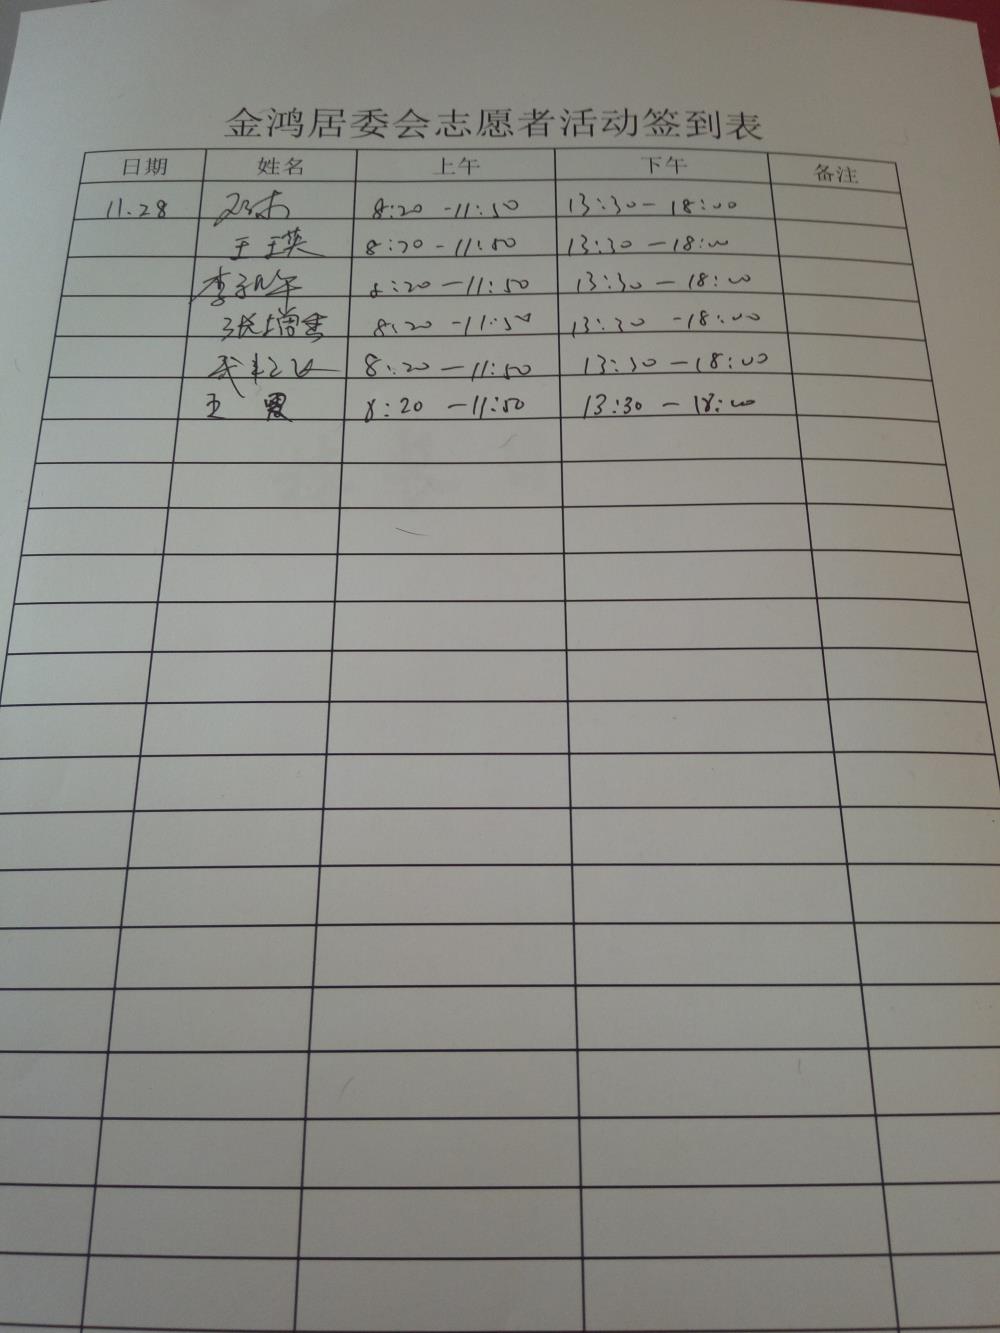 金鸿居委会志愿者活动签到表
日期 姓名 上午 下午 备注
11.28 8:20 -11:50 13:30-18:00
王玉英 8:20-11:50 13:30-18:00
李 8:20-11:50 13:30-18:00
张增 8:20-11:50 13:30-18:00
武 8:20-11:50 13:30-18:00
王 霞 8:20-11:50 13:30-18:00